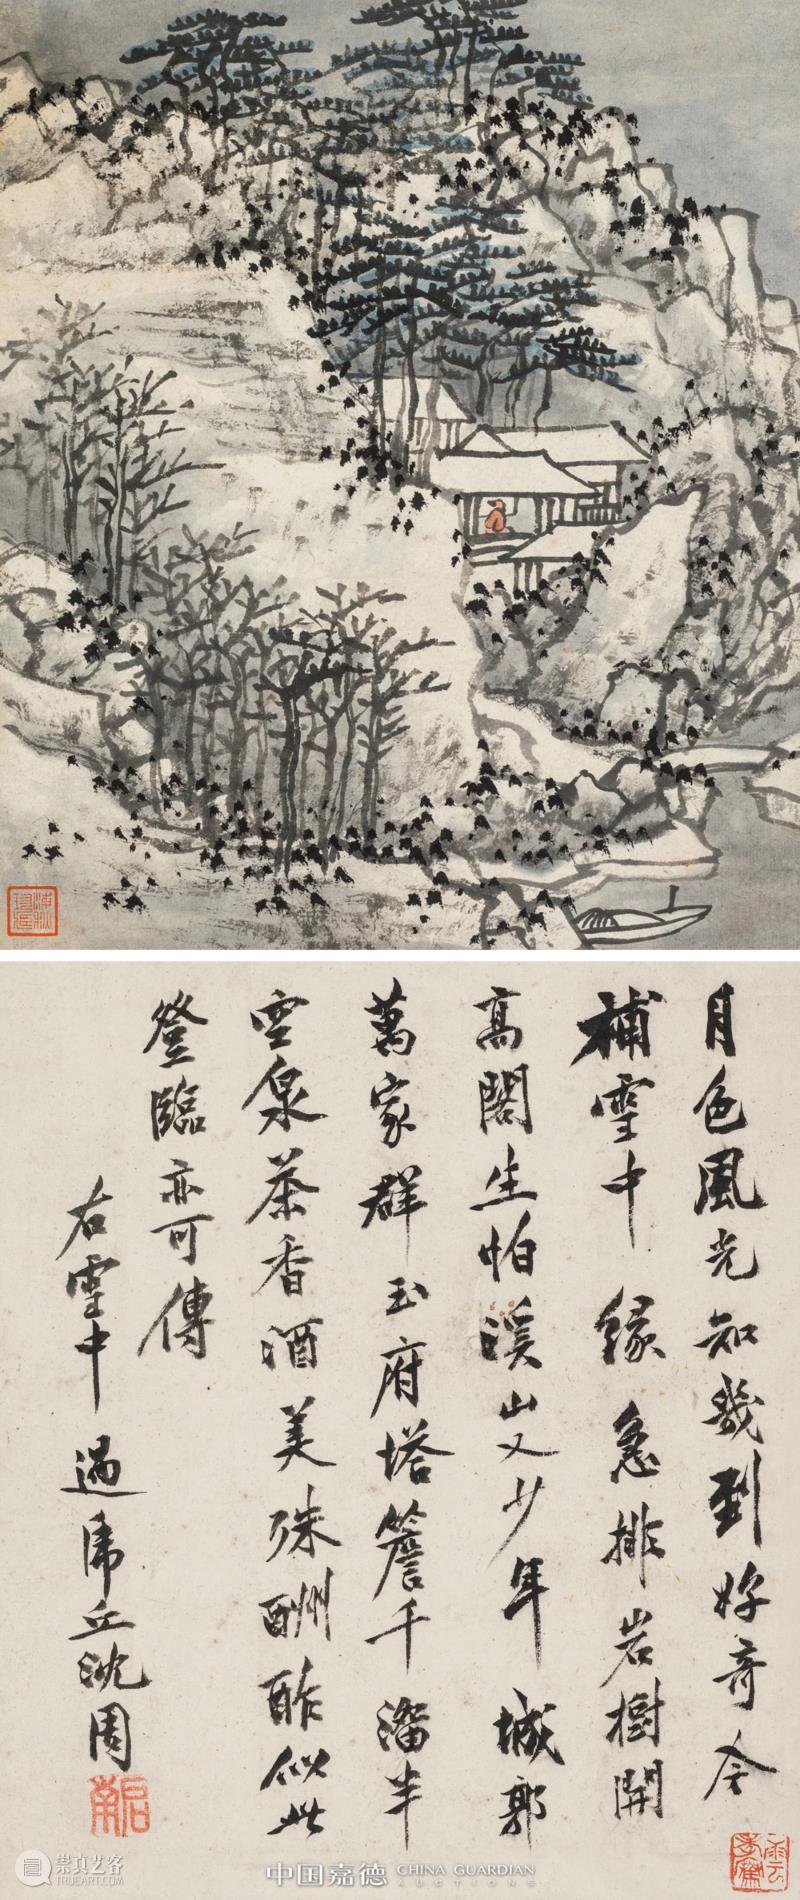 月色風光知幾到好奇今
補雪中緣急排岩樹開
高閣生怕溪山又少年城郭
萬家群玉府塔簷千溜半
空泉茶香酒美殊酬酢似此
登臨亦可傳
右雪中過虎丘沈周
啟南
崇真艺客
中国嘉德 CHINA GUARDIAN
AUCTIONS